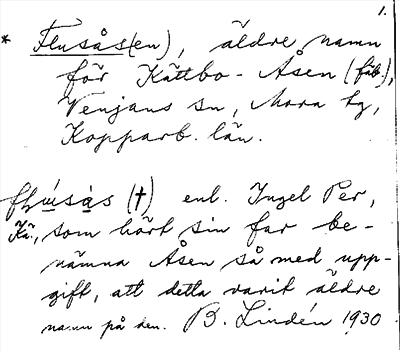 1.
* Flusås(en), äldre namn
för Kättbo-Åsen (fäb),
Venjans sn, Mora tg,
Kopparb. län.
flu̍sås (†) enl. Ingel Per,
Kä., som hört sin far be-
nämna Åsen så med upp-
gift, att detta varit äldre
namn på den. B. Lindén 1930